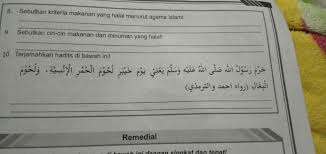 8. Sebutkan kriteria makanan yang halal menurut agama Islam!
9. Sebutkan ciri-ciri makanan dan minuman yang halal!
10. Terjemahkan hadits di bawah ini!
حَرَّمَ رَسُوْلُ اللهِ صَلَّى اللهُ عَلَيْهِ وَسَلَّمَ يَعْنِيْ يَوْمَ خَيْبَرَ لُحُوْمَ الْحُمُرِ الْإِنْسِيَّةِ ، وَلُحُوْمَ
الْبِغَالِ (رواه احمد والترمذي)
Remedial
di bawah ini dengan singkat dan tepat!